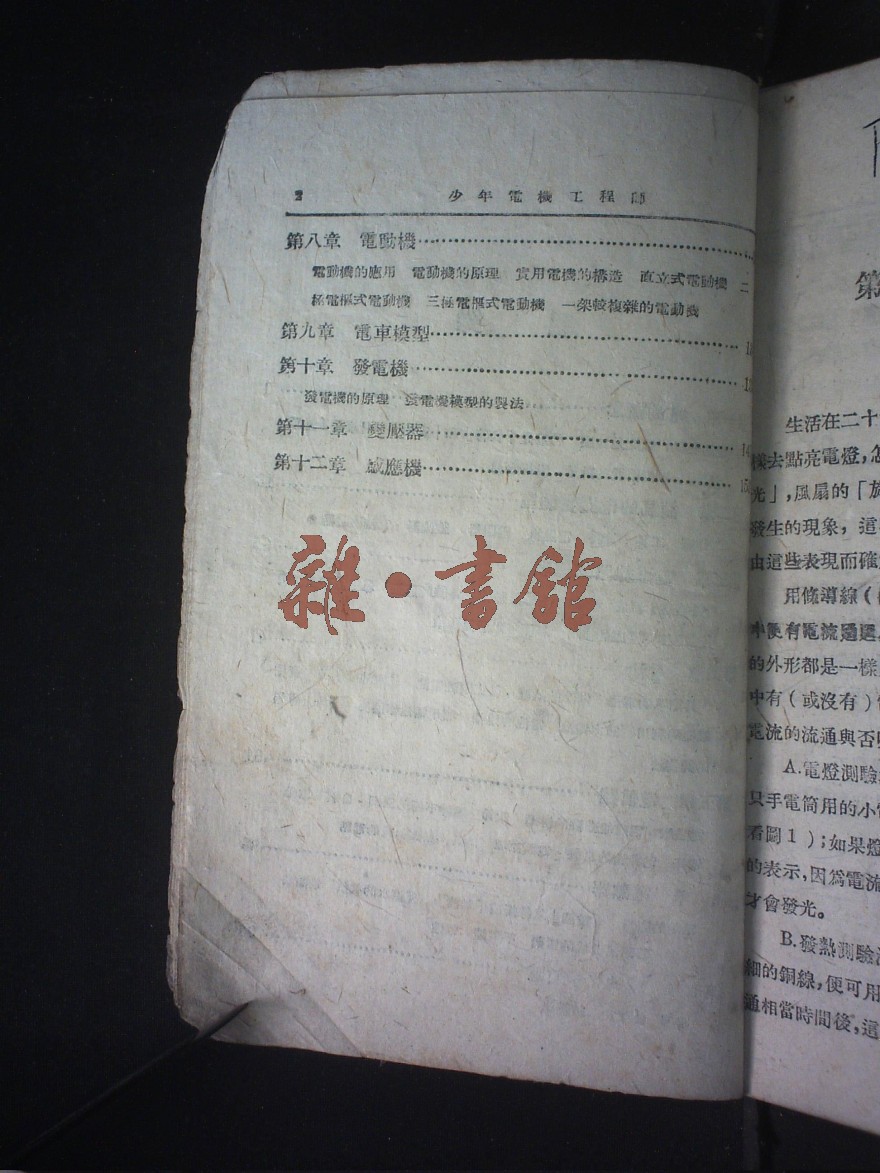 2 少年電機工程師
第八章 電動機
電動機的應用 電動機的原理 實用電機的構造 直立式電動機 二
極電樞式電動機 三極電樞式電動機 一架較複雜的電動機
第九章 電車模型
第十章 發電機
發電機的原理 發電機模型的製法
第十一章 變壓器
第十二章 感應機
雜·書館
第
生活在二十
樣去點亮電燈,怎
光」,風扇的「旋
發生的現象,這
由這些表現而確
用條導線(
中便有電流通過
的外形都是一樣
中有(或沒有)
電流的流通與否
A.電燈測驗
只手電筒用的小
看圖1);如果燈
的表示,因爲電流
才會發光。
B.發熱測驗
細的銅線,便可用
通相當時間後,這